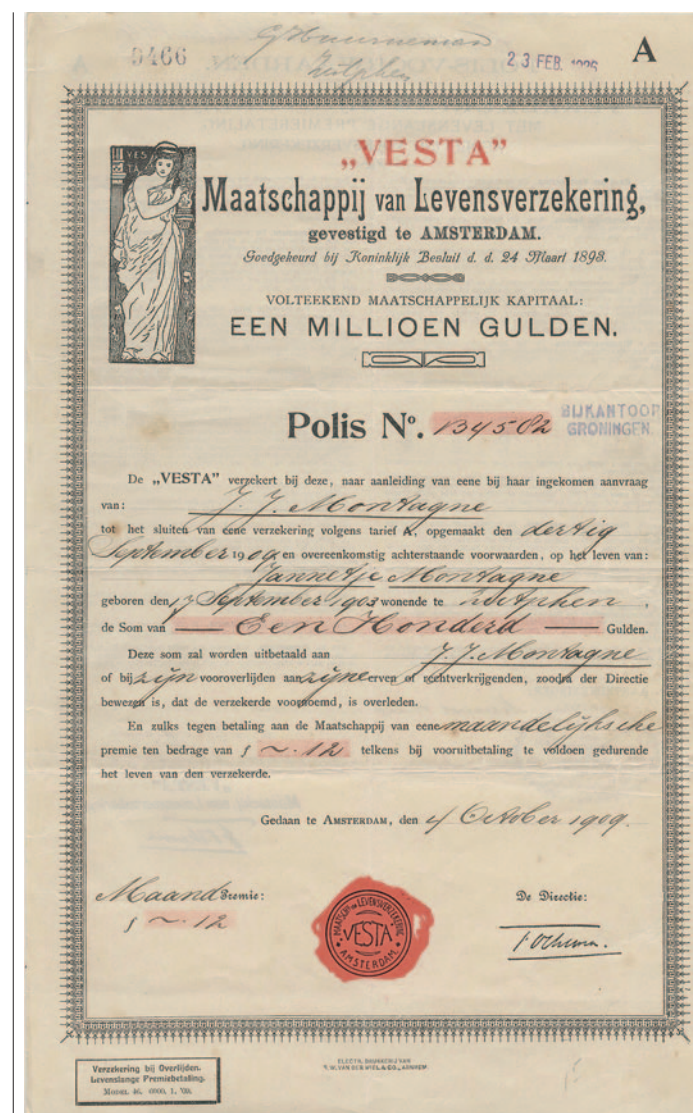 0466
Zutphen
23 FEB.
A
VESTA
„VESTA”
Maatschappij van Levensverzekering,
gevestigd te AMSTERDAM.
Goedgekeurd bij Koninklijk Besluit d. d. 24 Maart 1893.
VOLTEEKEND MAATSCHAPPELIJK KAPITAAL:
EEN MILLIOEN GULDEN.
Polis No. 134502
BIJKANTOOR
GRONINGEN.
De „VESTA” verzekert bij deze, naar aanleiding van eene bij haar ingekomen aanvraag
van: J. J. Montagne
tot het sluiten van eene verzekering volgens tarief A, opgemaakt den dertig
September 1909 en overeenkomstig achterstaande voorwaarden, op het leven van:
Jannetje Montagne
geboren den 17 September 1903 wonende te Zutphen,
de Som van — Een Honderd — Gulden.
Deze som zal worden uitbetaald aan J. J. Montagne
of bij zijn vooroverlijden aan zijne erven of rechtverkrijgenden, zoodra der Directie
bewezen is, dat de verzekerde voornoemd, is overleden.
En zulks tegen betaling aan de Maatschappij van eene maandelijksche
premie ten bedrage van f ~.12 telkens bij vooruitbetaling te voldoen gedurende
het leven van den verzekerde.
Gedaan te AMSTERDAM, den 4 October 1909.
Maand Premie:
f ~.12
MAATSCHij VAN LEVENSVERZEKERING
VESTA
AMSTERDAM.
De Directie:
Verzekering bij Overlijden.
Levenslange Premiebetaling.
MODEL 46. 6000. 1. '09.
ELECTR. DRUKKERIJ VAN
V. W. VAN DER WIEL & CO., ARNHEM.